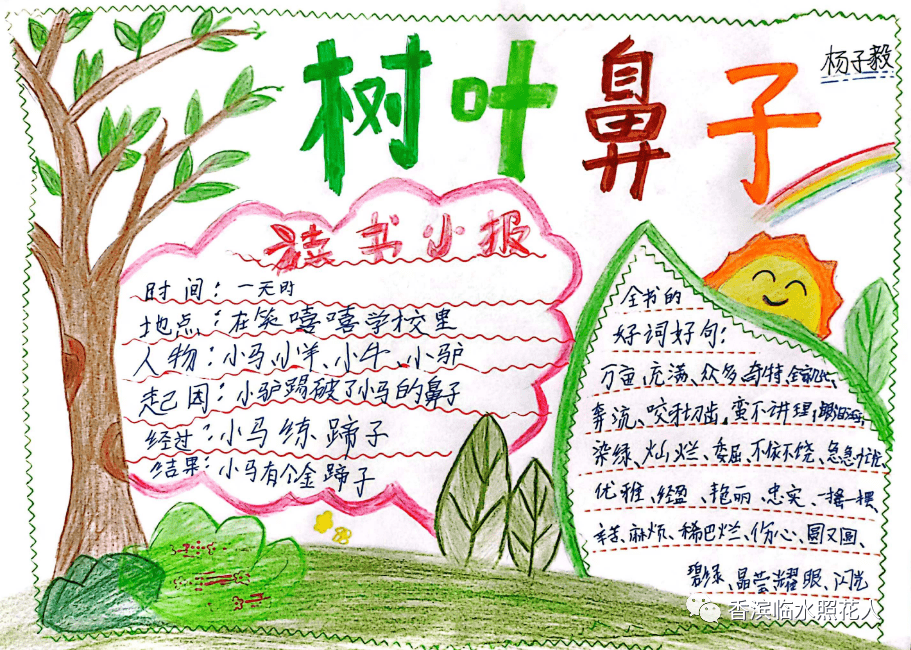 树叶鼻子
杨子毅
读书小报
时间：一天时
地点：在笑嘻嘻学校里
人物：小马、小羊、小牛、小驴
起因：小驴踢破了小马的鼻子
经过：小马练蹄子
结果：小马有个金蹄子
全书的
好词好句：
万亩、充满、众多、奇特、
奔流、咬牙切齿，蛮不讲理，
染绿、灿烂、委屈、不依不饶、急急忙忙
优雅、轻盈、艳丽、忠实、一摇一摆、
辛苦、麻烦、稀巴烂、伤心、圆又圆、
碧绿、晶莹耀眼、闪光
香滨临水照花人